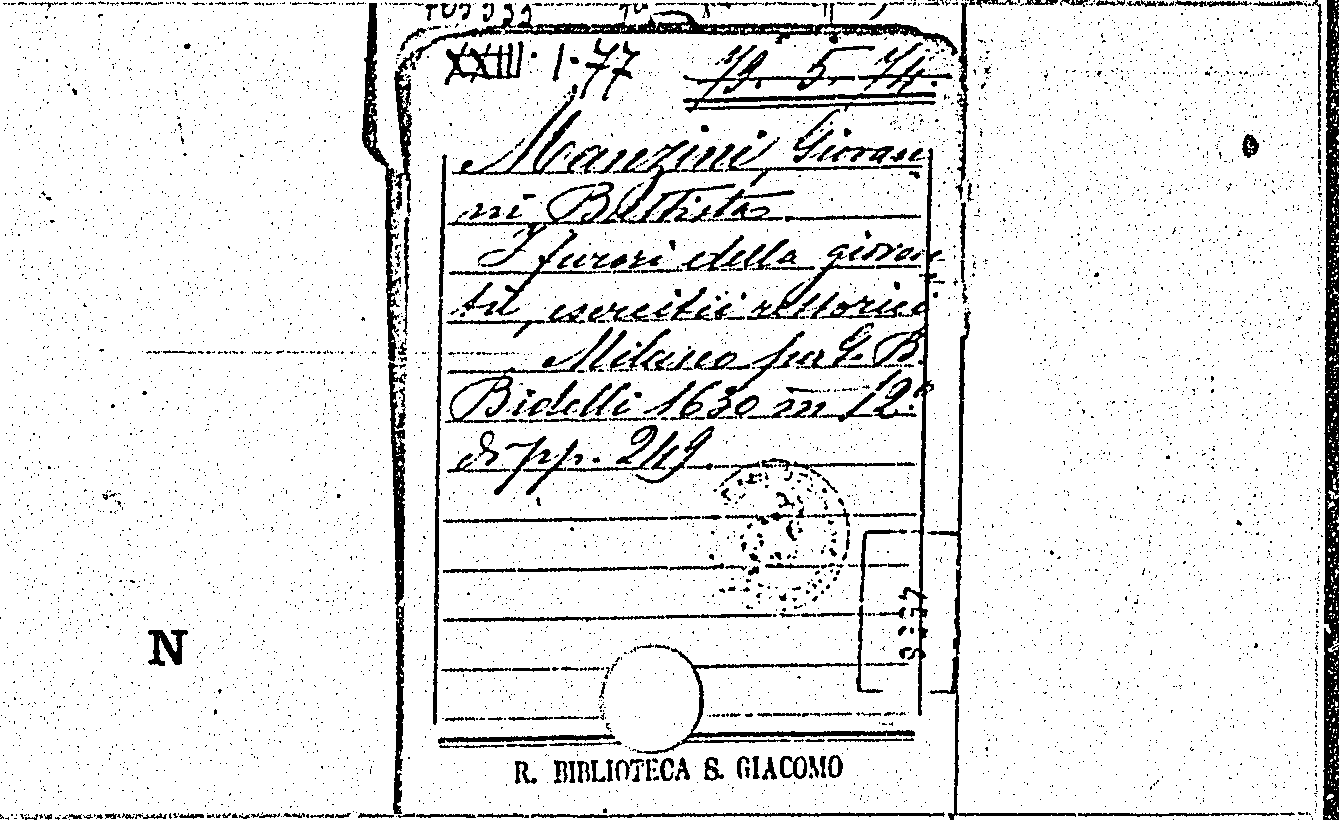 XXIII. 1-77 79. 5. 74.
Manzini, Giovan
ni Battista.
I furori della gioven
tù, esercitii rettorici
Milano per G. B.
Bidelli 1630 in 12.°
di pp. 249.
N
R. BIBLIOTECA S. GIACOMO